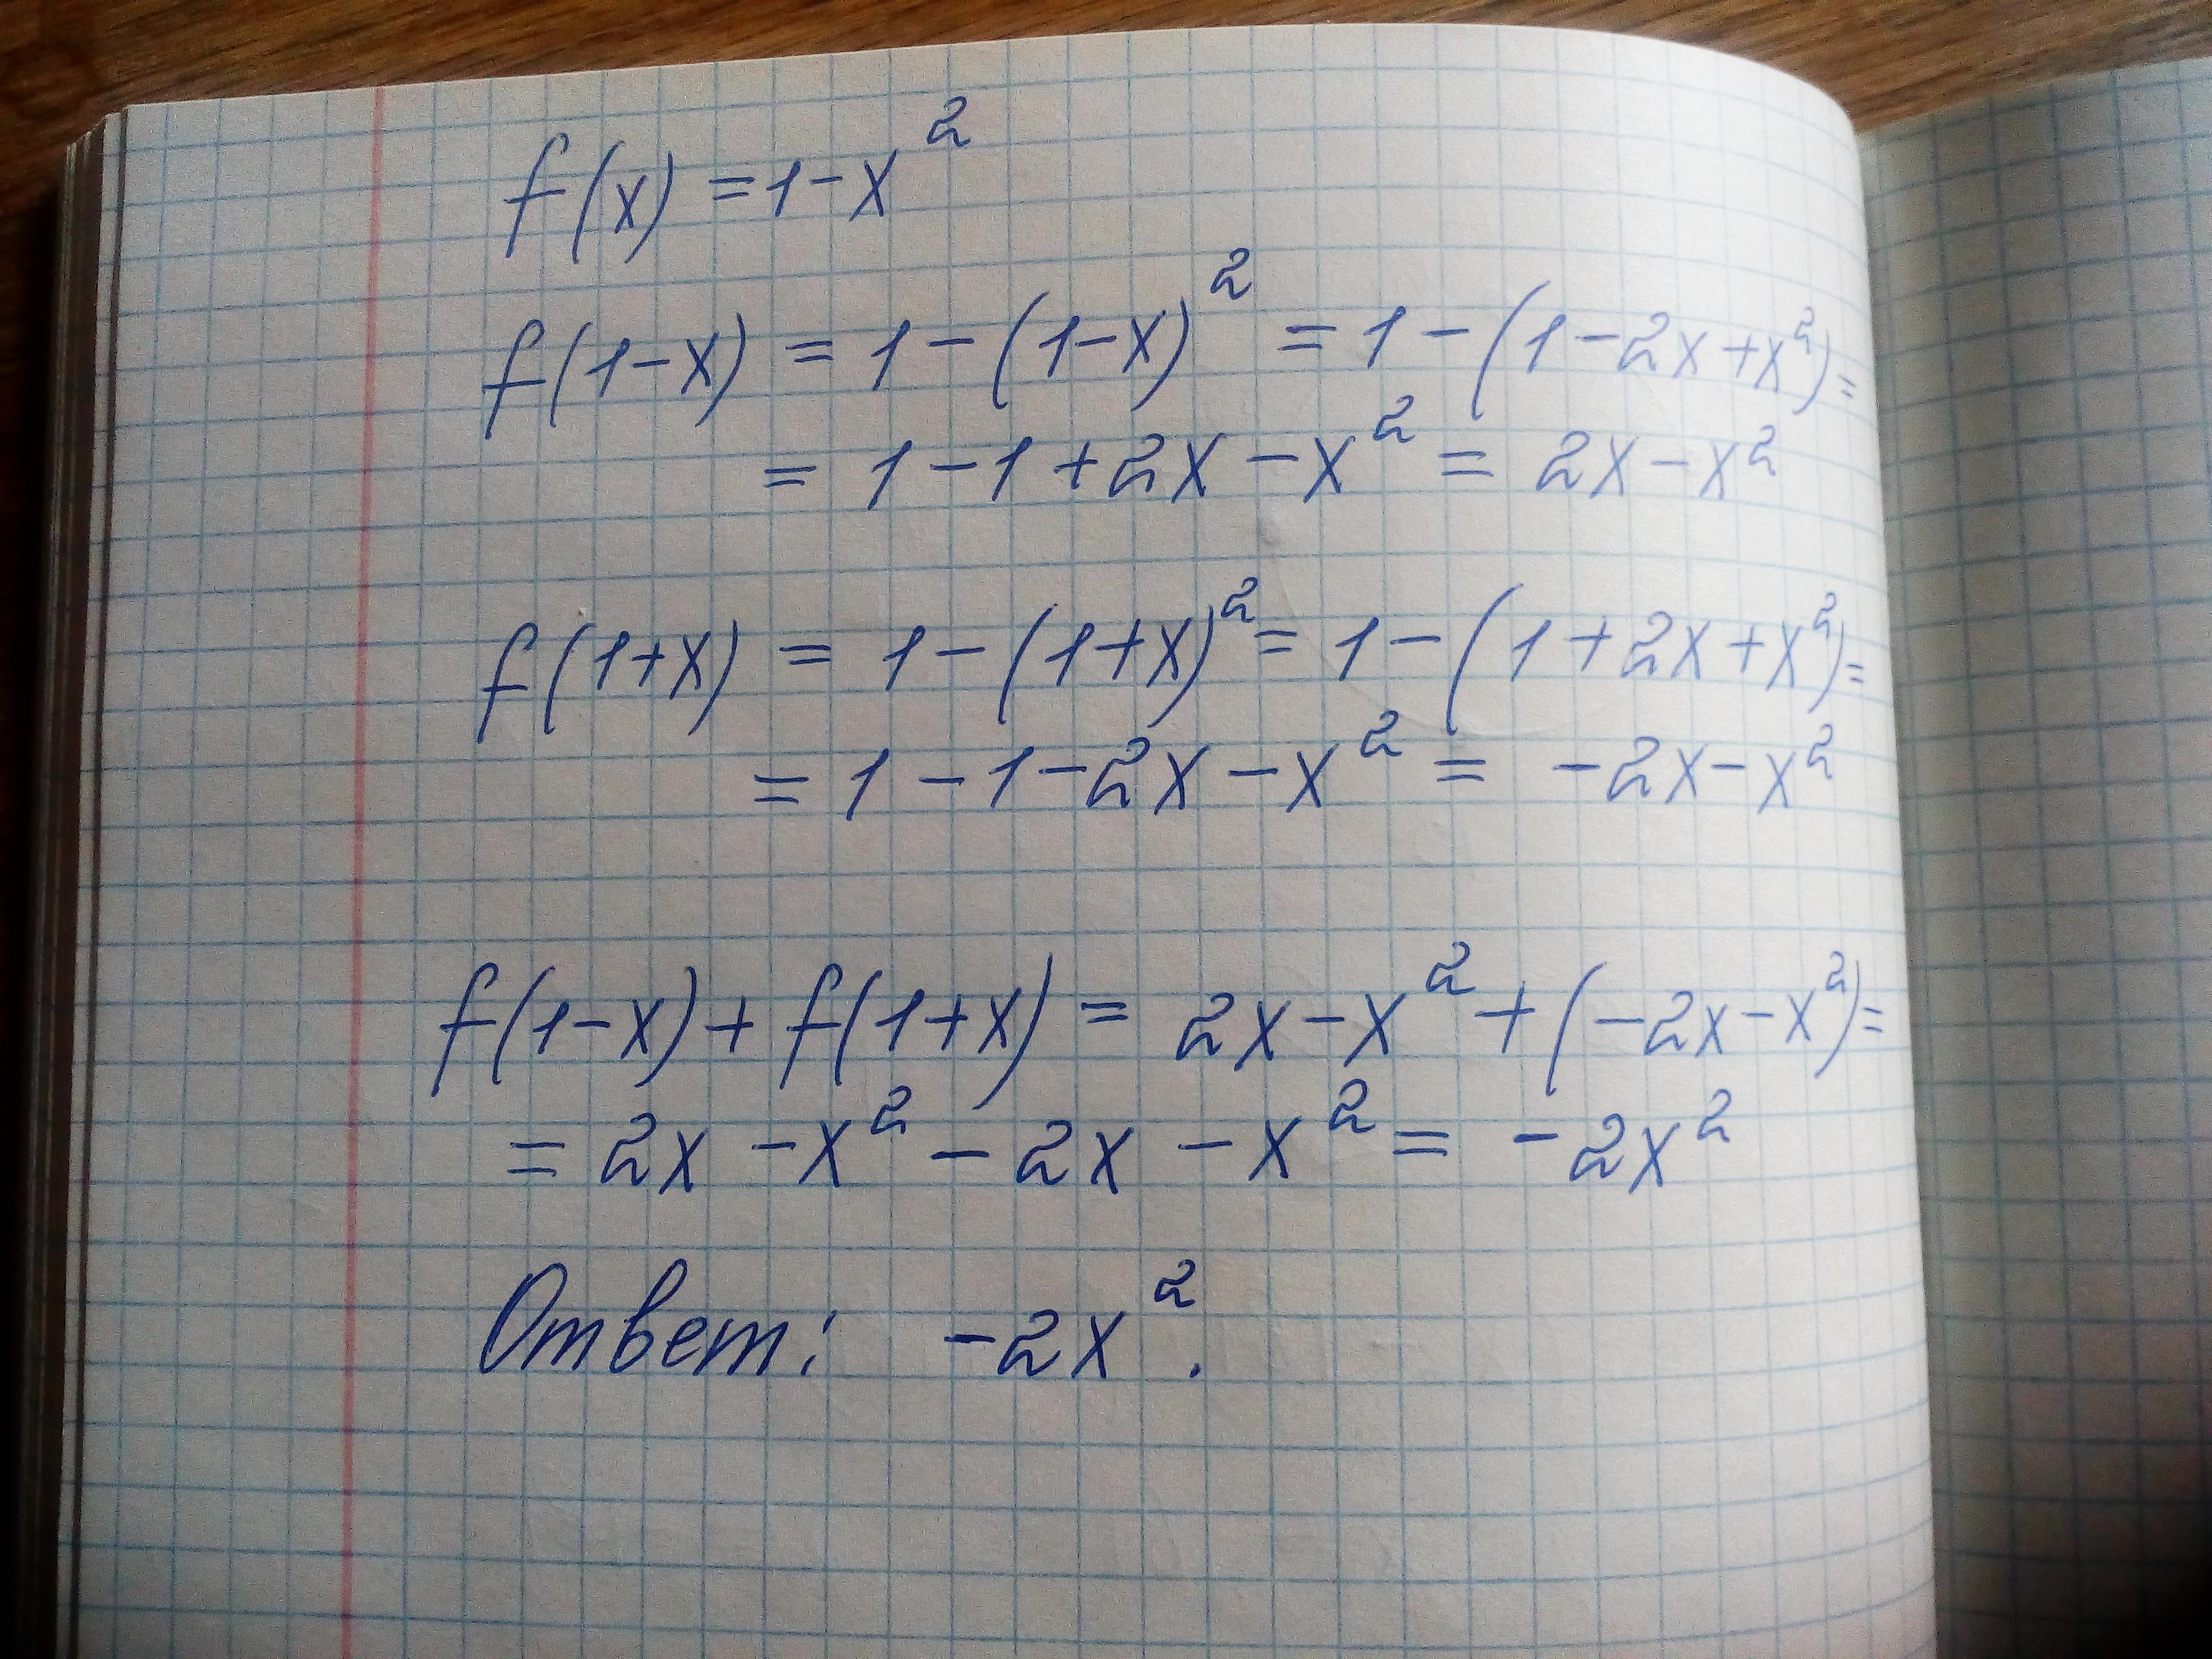 f(x) = 1 - x²
f(1-x) = 1 - (1-x)² = 1 - (1 - 2x + x²) =
= 1 - 1 + 2x - x² = 2x - x²
f(1+x) = 1 - (1+x)² = 1 - (1 + 2x + x²) =
= 1 - 1 - 2x - x² = -2x - x²
f(1-x) + f(1+x) = 2x - x² + (-2x - x²) =
= 2x - x² - 2x - x² = -2x²
Ответ: -2x².